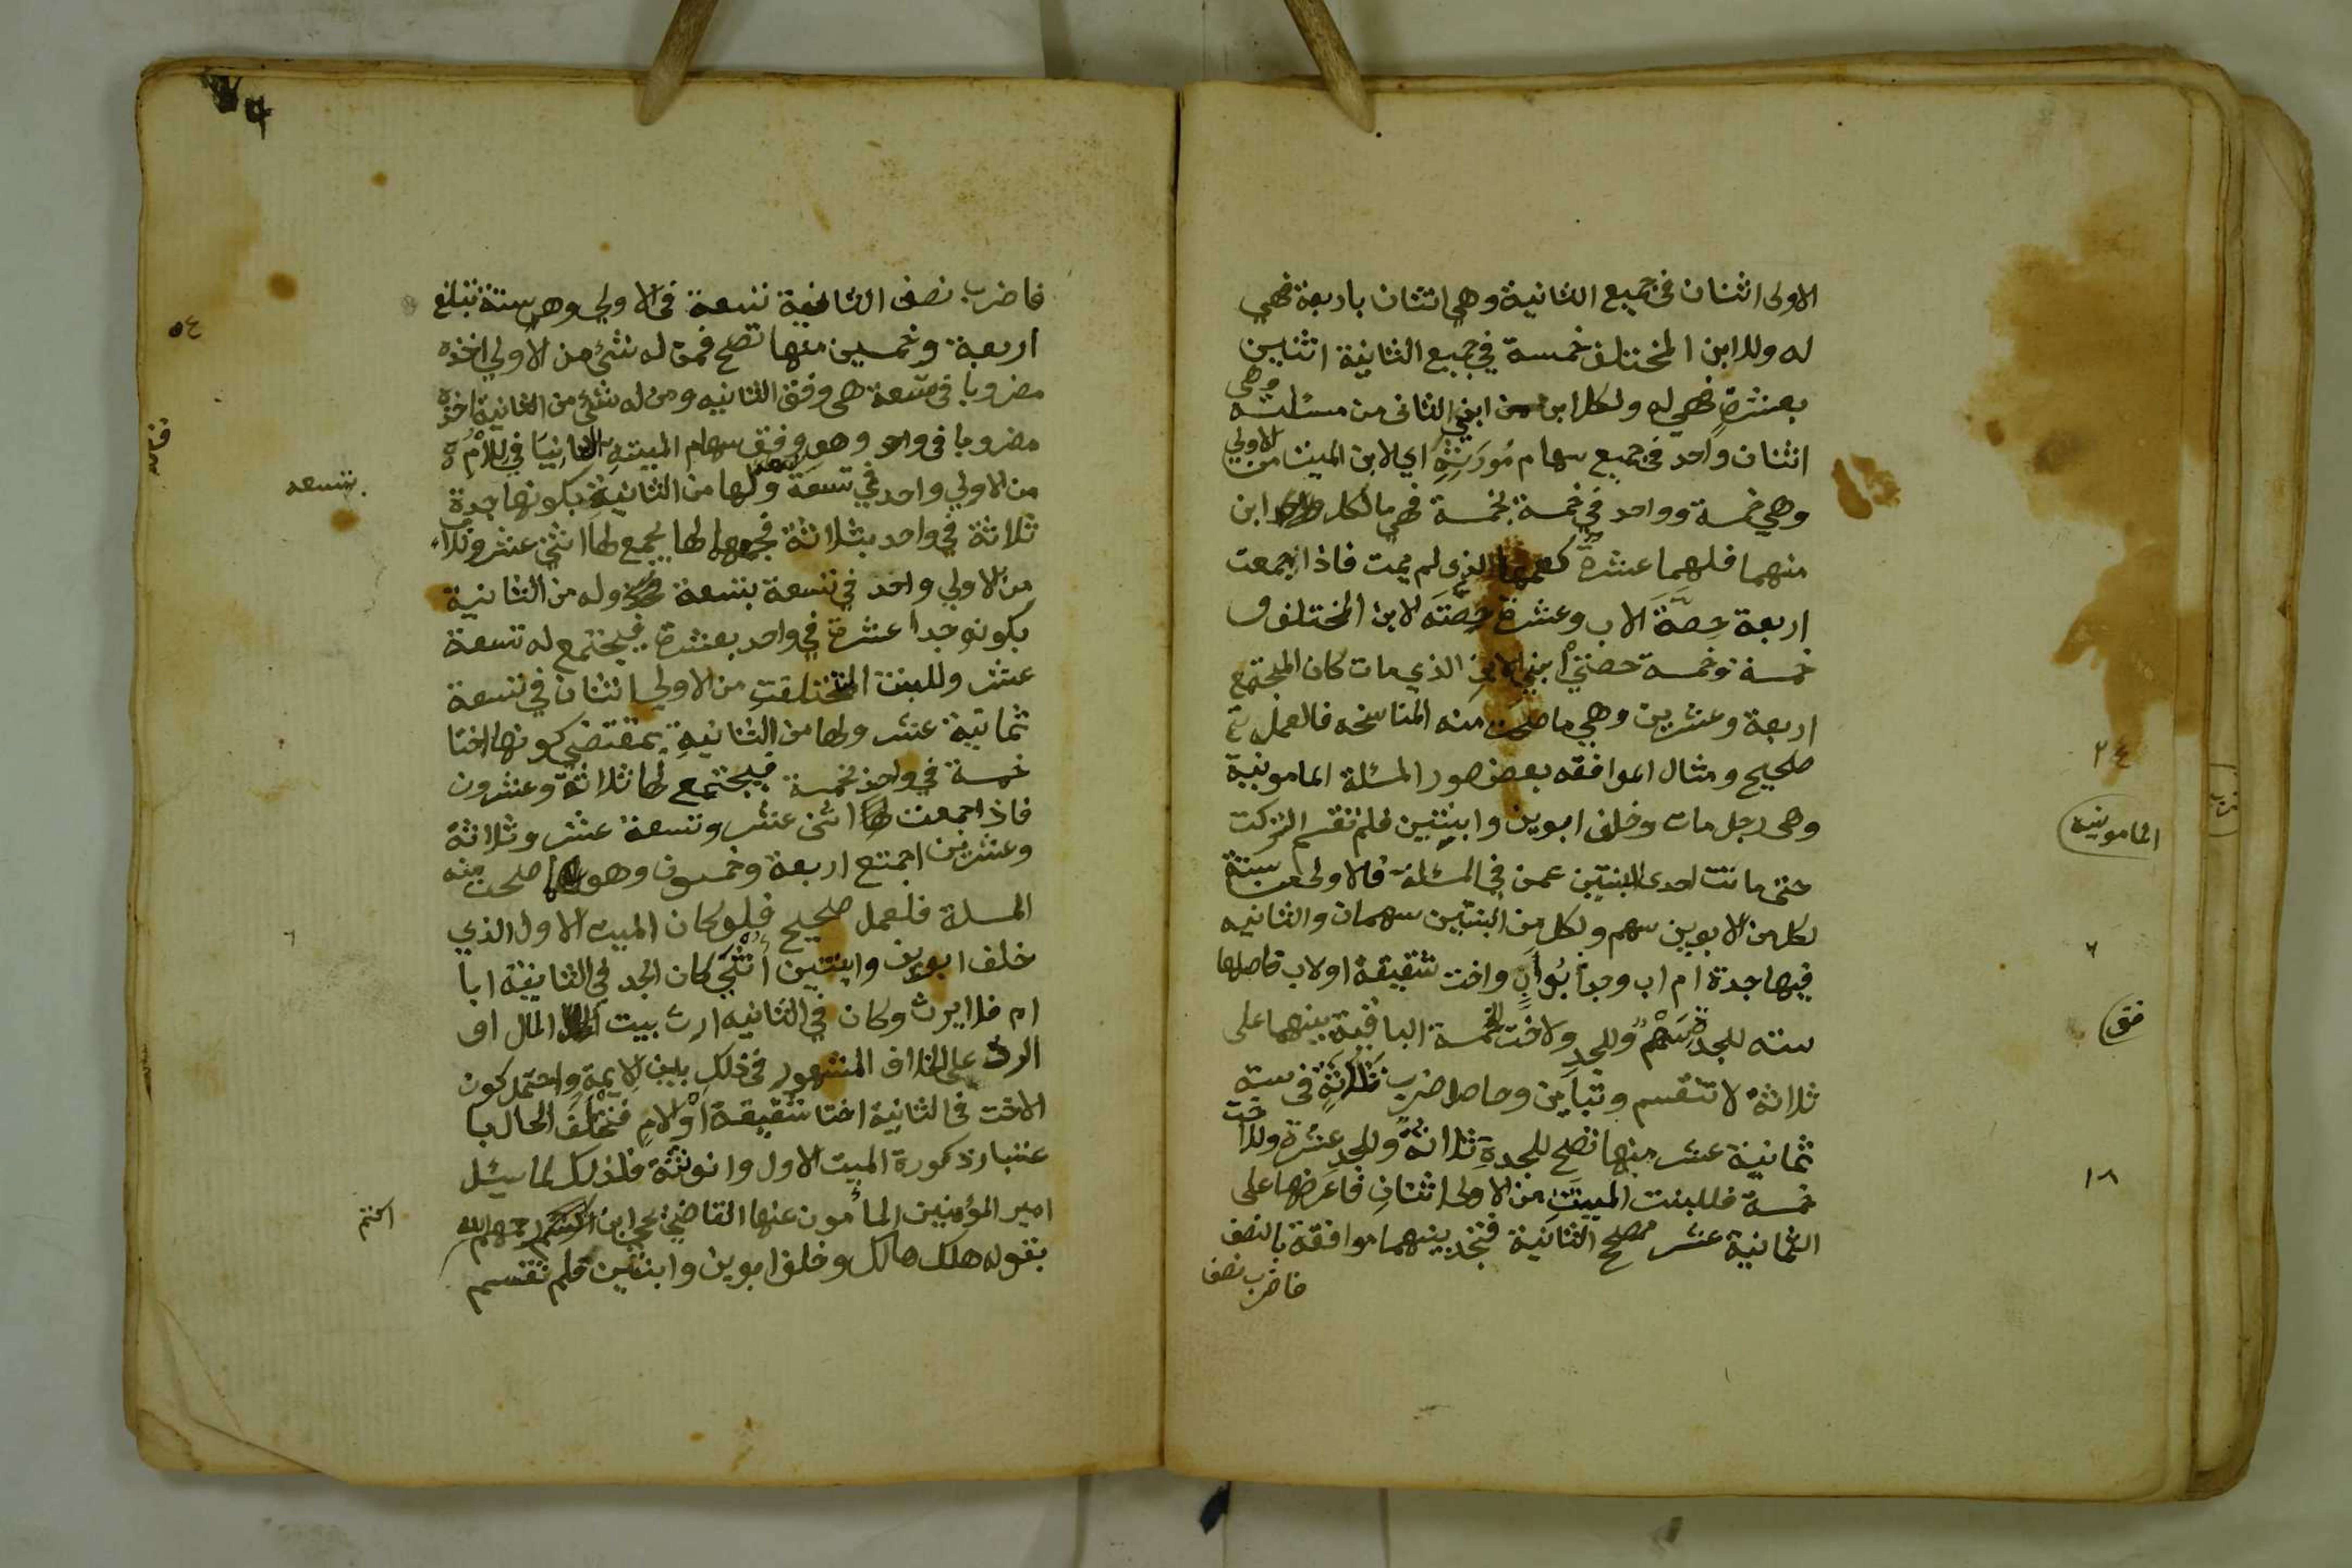 الاولى اثنان في جميع الثانية وهي اثنان باربعة فهي
له وللابن المختلف خمسة في جميع الثانية اثنين
بعشرة فهي له ولكل ابن من ابني الثاني من مسئلته وهي
اثنان واحد في جميع سهام مورثه اي الابن الميت من الاولي
وهي خمسة وواحد في خمسة بخمسة فهي مالكل ابن
منهما فلهما عشرة كعمهما الذي لم يمت فاذا جمعت
اربعة حصة الاب وعشرة حصته لابن المختلف و
خمسة وخمسة حصتي ابني الابن الذي مات كان المجتمع
اربعة وعشرين وهي ما صحت منه المناسخه فالعمل
صحيح ومثال الموافقه بعض صور المسئلة المامونية
وهى رجل مات وخلف ابوين وابنتين فلم تقسم التركت
حتى ماتت احدى البنتين عمن في المسئلة فالاولى من ستة
لكل من الابوين سهم ولكل من البنتين سهمان والثانيه
فيها جدة ام اب وجد ابو اب واخت شقيقة او لاب فاصلها
سته للجدة سهم وللجد ولاخت الخمسة الباقية بينهما على
ثلاثة لا تنقسم وتباين وحاصل ضرب ثلاثة في ستة
ثمانية عشر منها تصح للجدة ثلاثة وللجد عشرة وللاخت
خمسة فللبنت الميتت من الاولى اثنان فاعرضها على
الثمانية عشر مصح الثانية فتجد بينهما موافقة بالنصف
فاضرب نصف
٢٤
المامونية
٦
١٨
فاضرب نصف الثانية تسعة في الاولي وهي ستة تبلغ
اربعة وخمسين منها تصح فمن له شئ من الاولي اخذه
مضروبا في تسعة هى وفق الثانيه ومن له شئ من الثانية اخذه
مضروبا في واحد وهو وفق سهام الميتة الثانيا في للام
من الاولي واحد في تسعة ولها من الثانية بكونها جدة
ثلاثة في واحد بثلاثة يجمع لها اثنى عشر وللاب
من الاولي واحد في تسعة بتسعة وله من الثانية
بكونه جدا عشرة في واحد بعشرة فيجتمع له تسعة
عشر وللبنت المختلفت من الاولي اثنان في تسعة
ثمانية عشر ولها من الثانية بمقتضى كونها اختا
خمسة في واحد بخمسة فيجتمع لها ثلاثة وعشرون
فاذا جمعت اثنى عشر وتسعة عشر وثلاثة
وعشرين اجمتع اربعة وخمسون وهو ما صلحت منه
المسلة فلعمل صحيح فلو كان الميت الاول الذي
خلف ابوين وابنتين أنثى كان الجد في الثانية ابا
ام فلا يرث وكان في الثانيه ارث بيت المال او
الرد على الخلاف المشهور في ذلك بين الايمة واحتمل كون
الاخت في الثانية اختا شقيقة او لام فتخلف الحال با
عتبار ذكورة الميت الاول وانوثته فلذلك لما سئل
امير المؤمنين المأمون عنها القاضي يحي ابن اكثم رحمهم الله
بقوله هلك هالك وخلف ابوين وابنتين فلم تقسم
٥٤
تسعه
٦
اكثم